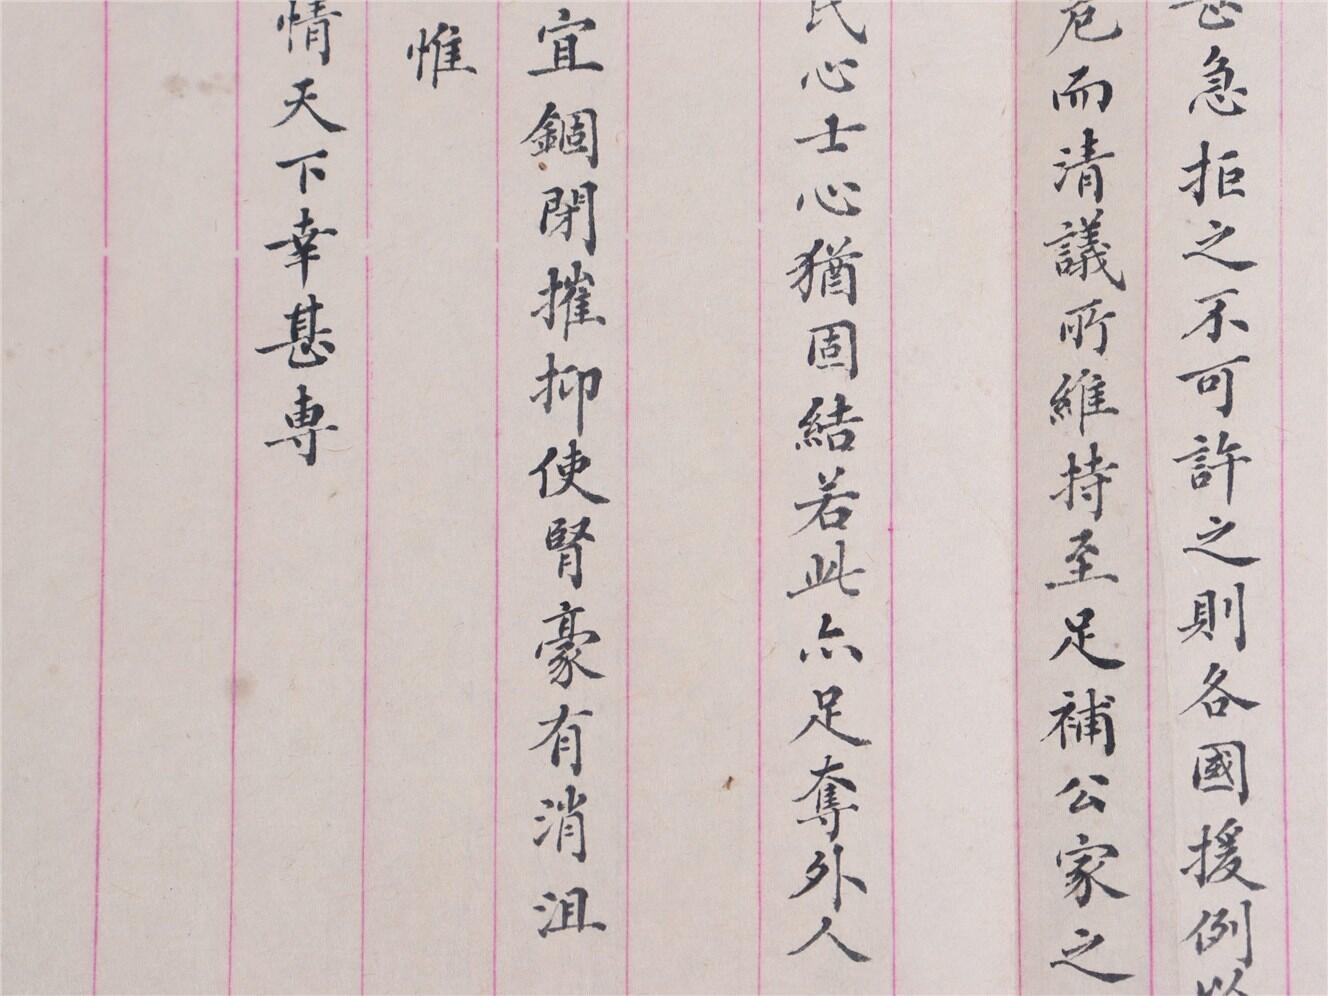 甚急拒之不可許之則各國援例以
危而清議所維持至足補公家之
民心士心猶固結若此亦足奪外人
宜錮閉摧抑使腎豪有消沮
惟
情天下幸甚專